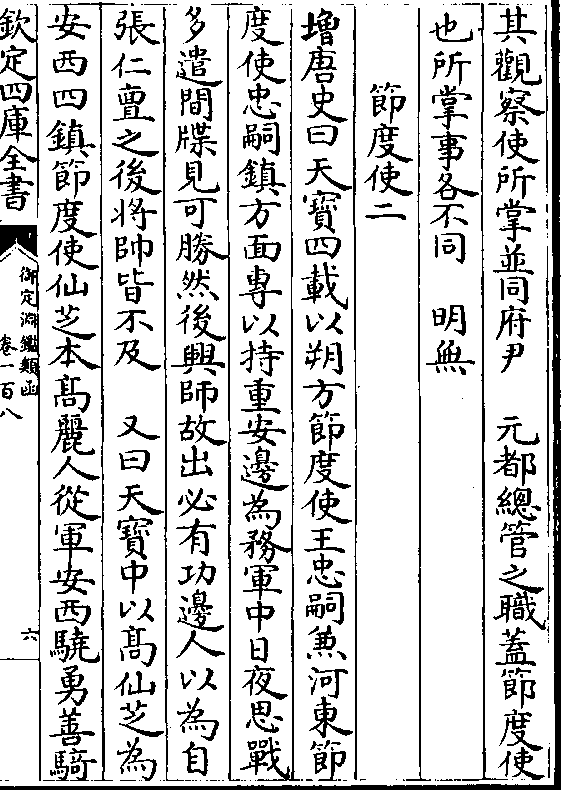 其觀察使所掌並同府尹　元都總管之職蓋節度使
也所掌事各不同　明無
節度使二
增唐史曰天寶四載以朔方節度使王忠嗣兼河東節
度使忠嗣鎮方面專以持重安邊為務軍中日夜思戰
多遣間牒見可勝然後興師故出必有功邊人以為自
張仁亶之後將帥皆不及　又曰天寶中以髙仙芝為
安西四鎮節度使仙芝本髙麗人從軍安西驍勇善騎
欽定四庫全書
御定淵鑑類函
卷一百八
六